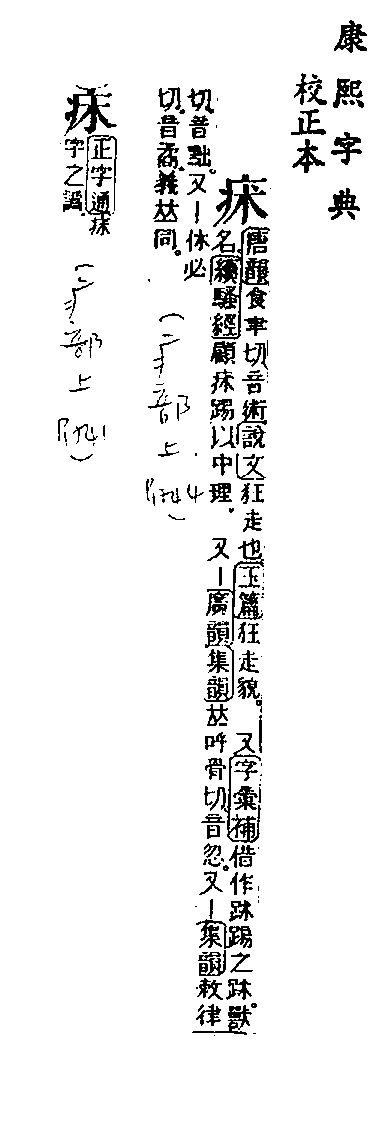 康熙字典
校正本
唐韻食聿切音術說文狂走也玉篇狂走貌。又字彙補借作踢之獸
名。續騷經顧踢以中理。又丨廣韻集韻𠀤呼骨切音忽。又丨集韻敕律
切音黜。又丨休必
切音矞義𠀤同。
(疒部上附)
正字通
字之譌。
(疒部上附)